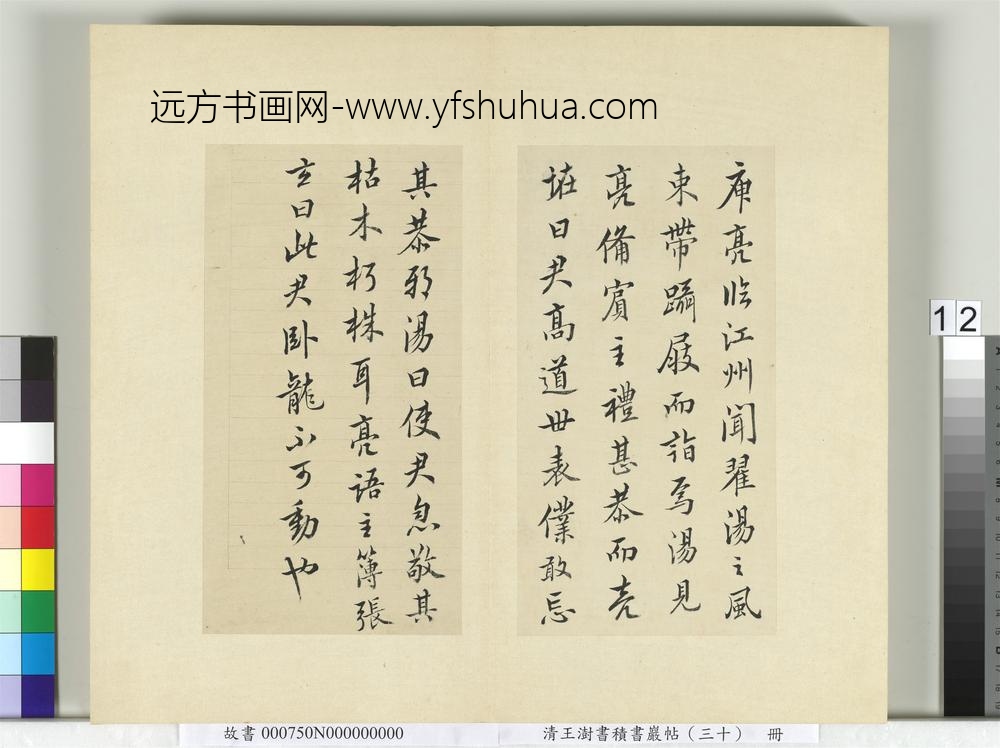 远方书画网-www.yfshuhua.com
庾亮臨江州聞翟湯之風
束帶躡屐而詣焉湯見
亮備賓主禮甚恭而
曰君高道世表僕敢忘
其恭邪湯曰使君敬其
枯木朽株耳亮語主簿張
玄曰此君臥龍不可動也
12
故書 000750N000000000
清王澍書積書巖帖（三十） 冊